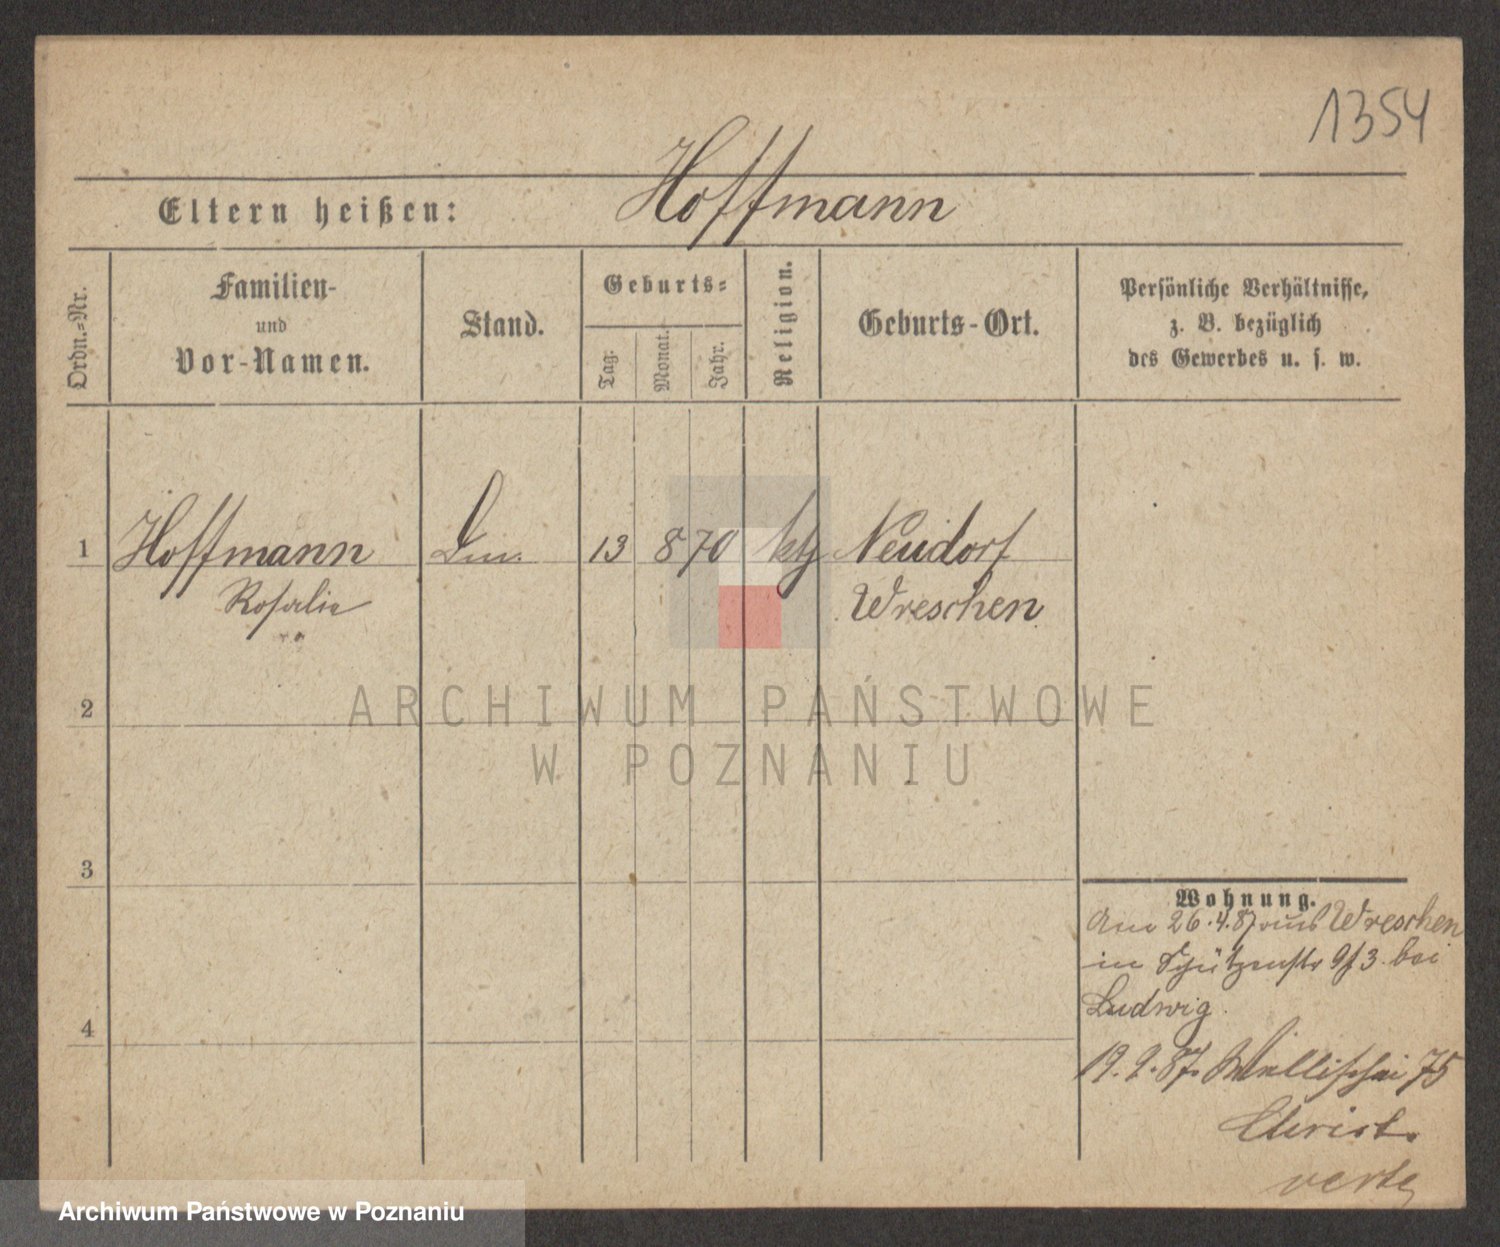 1354
Eltern heißen: Hoffmann
Ordn.=Nr.
Familien-
und
Vor-Namen.
Stand.
Geburts=
Tag.
Monat.
Jahr.
Religion.
Geburts-Ort.
Persönliche Verhältnisse,
z. B. bezüglich
des Gewerbes u. s. w.
1 Hoffmann 13 8 70 ktz Neudorf
Rosalie Wreschen
ARCHIWUM PAŃSTWOWE
W POZNANIU
2
3
4
Wohnung.
Am 26.4.87 aus Wreschen
in Schützenstr 9/3 bei
Ludwig.
19.9.87. 75
Christ.
verte
Archiwum Państwowe w Poznaniu